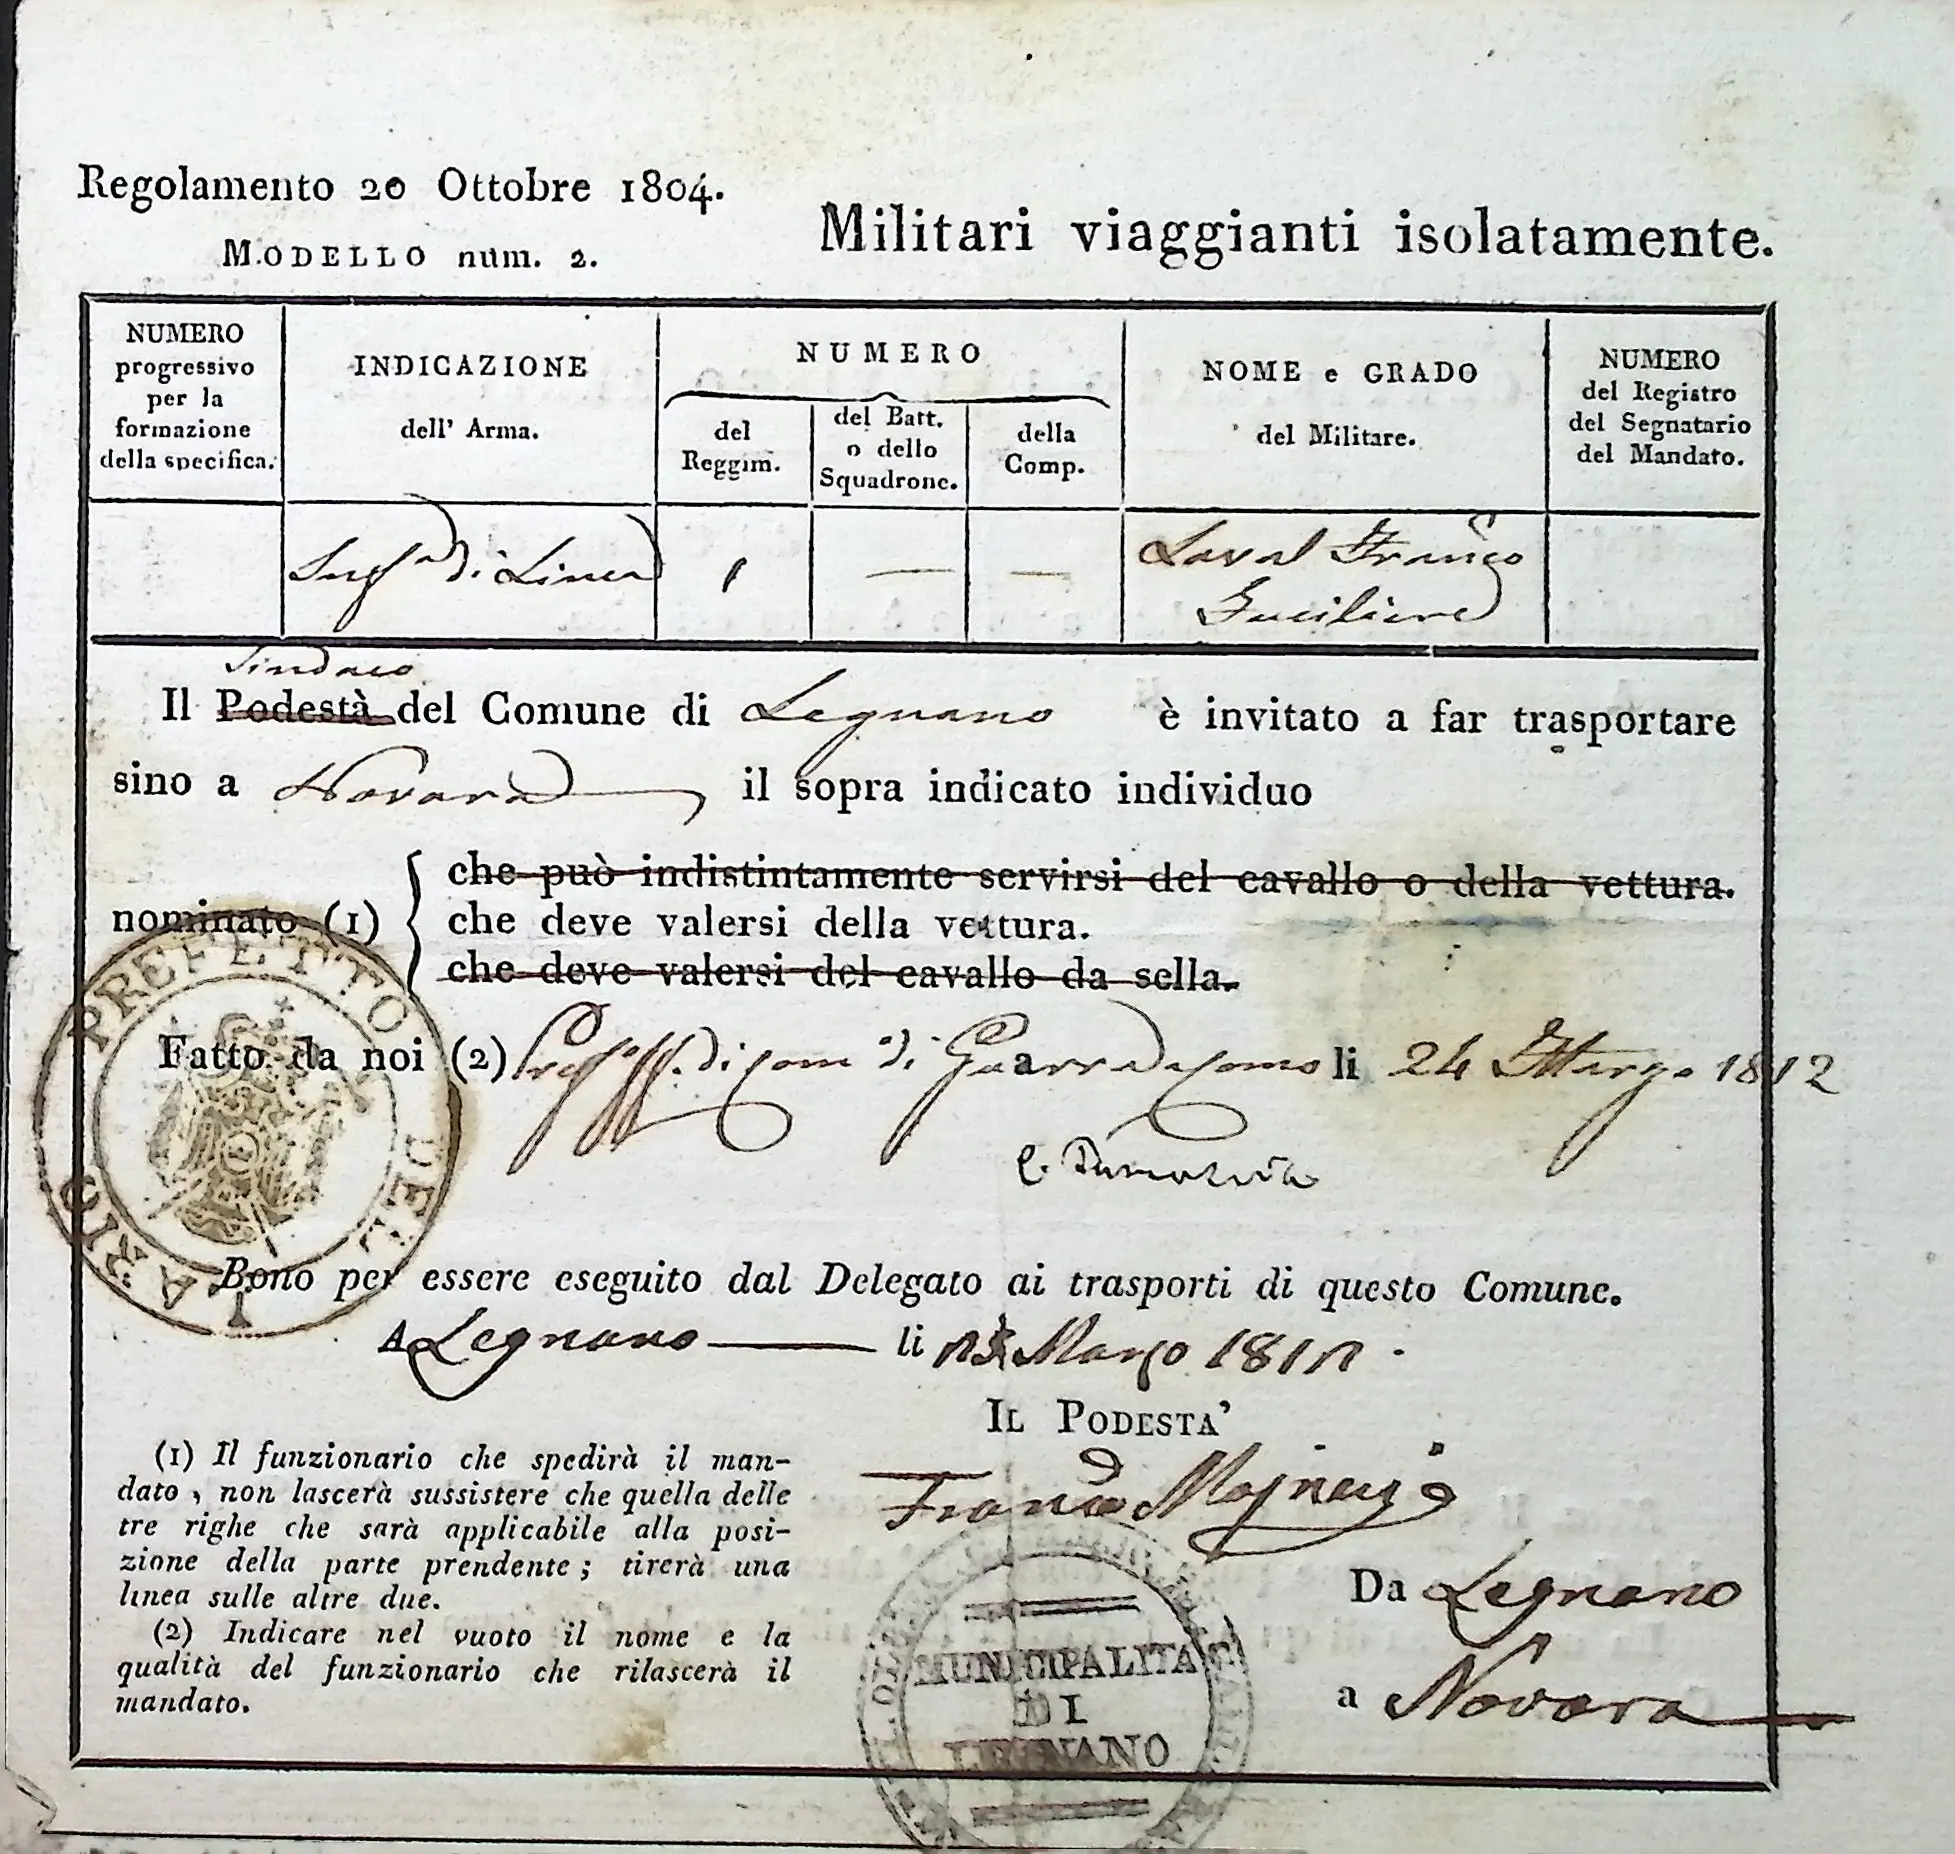 Regolamento 20 Ottobre 1804.
MODELLO num. 2.
Militari viaggianti isolatamente.
NUMERO
progressivo
per la
formazione
della specifica.
INDICAZIONE
dell' Arma.
NUMERO
del
Reggim.
del Batt.
o dello
Squadrone.
della
Comp.
NOME e GRADO
del Militare.
NUMERO
del Registro
del Segnatario
del Mandato.
di Linea
1
—
—
Laval Franco
Fuciliere
Sindaco
Il Podestà del Comune di Legnano è invitato a far trasportare
sino a Novara il sopra indicato individuo
che può indistintamente servirsi del cavallo o della vettura.
nominato (1)
che deve valersi della vettura.
che deve valersi del cavallo da sella.
Fatto da noi (2) di Guerra Como li 24 Marzo 1812
PREFETTO DEL LARIO
Bono per essere eseguito dal Delegato ai trasporti di questo Comune.
A Legnano li Marzo 1812.
IL PODESTA'
Franco
(1) Il funzionario che spedirà il man-
dato, non lascerà sussistere che quella delle
tre righe che sarà applicabile alla posi-
zione della parte prendente; tirerà una
linea sulle altre due.
(2) Indicare nel vuoto il nome e la
qualità del funzionario che rilascerà il
mandato.
MUNICIPALITA
DI
LEGNANO
Da Legnano
a Novara